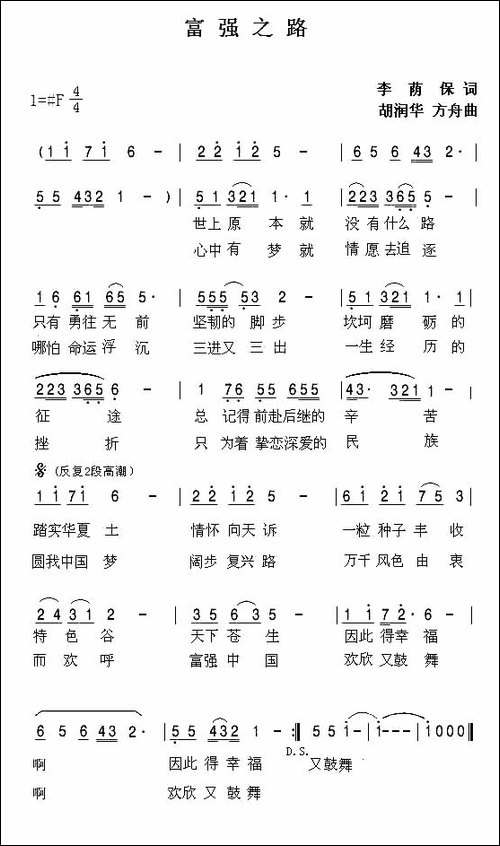 富强之路
1=#F 4/4
李荫保 词
胡润华 方舟曲
(1 1 7 1 6 - | 2 2 1 2 5 - | 6 5 6 43 2· |
5 5 432 1 -) | 5 1 321 1· 1 | 223 365 5 - |
世上原 本就 没有什么路
心中有 梦就 情愿去追逐
1 6 61 65 5· | 555 53 2 - | 5 1 321 1· 1 |
只有勇往无前 坚韧的脚步 坎坷磨砺的
哪怕命运浮沉 三进又三出 一生经历的
223 365 6 - | 1 76 55 655 | 43· 321 1 - |
征途 总记得前赴后继的辛苦
挫折 只为着挚恋深爱的民族
(反复2段高潮)
1 1 7 1 6 - | 2 2 1 2 5 - | 6 1 2 1 75 3 |
踏实华夏土 情怀向天诉 一粒种子丰收
圆我中国梦 阔步复兴路 万千风色由衷
24 31 2 - | 35 635 - | 1 1 72· 6 - |
特色谷 天下苍生 因此得幸福
而欢呼 富强中国 欢欣又鼓舞
6 5 6 43 2· | 55 432 1 - :| 551 - | 1--- | 1000 ‖
D.S.
啊 因此得幸福 又鼓舞
啊 欢欣又鼓舞